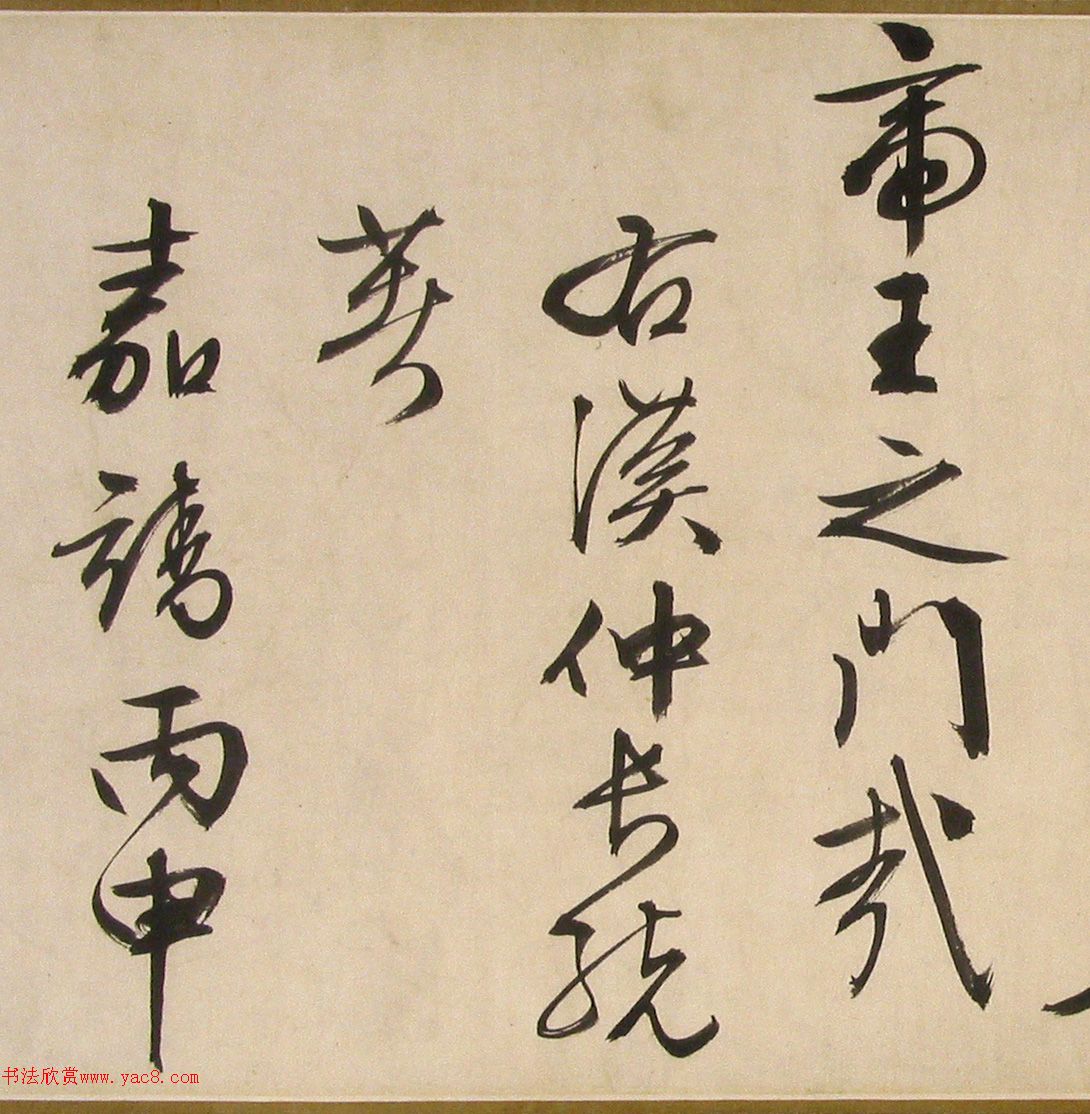 帝王之門哉
右漢仲長統
著
嘉靖丙申
书法欣赏www.yac8.com